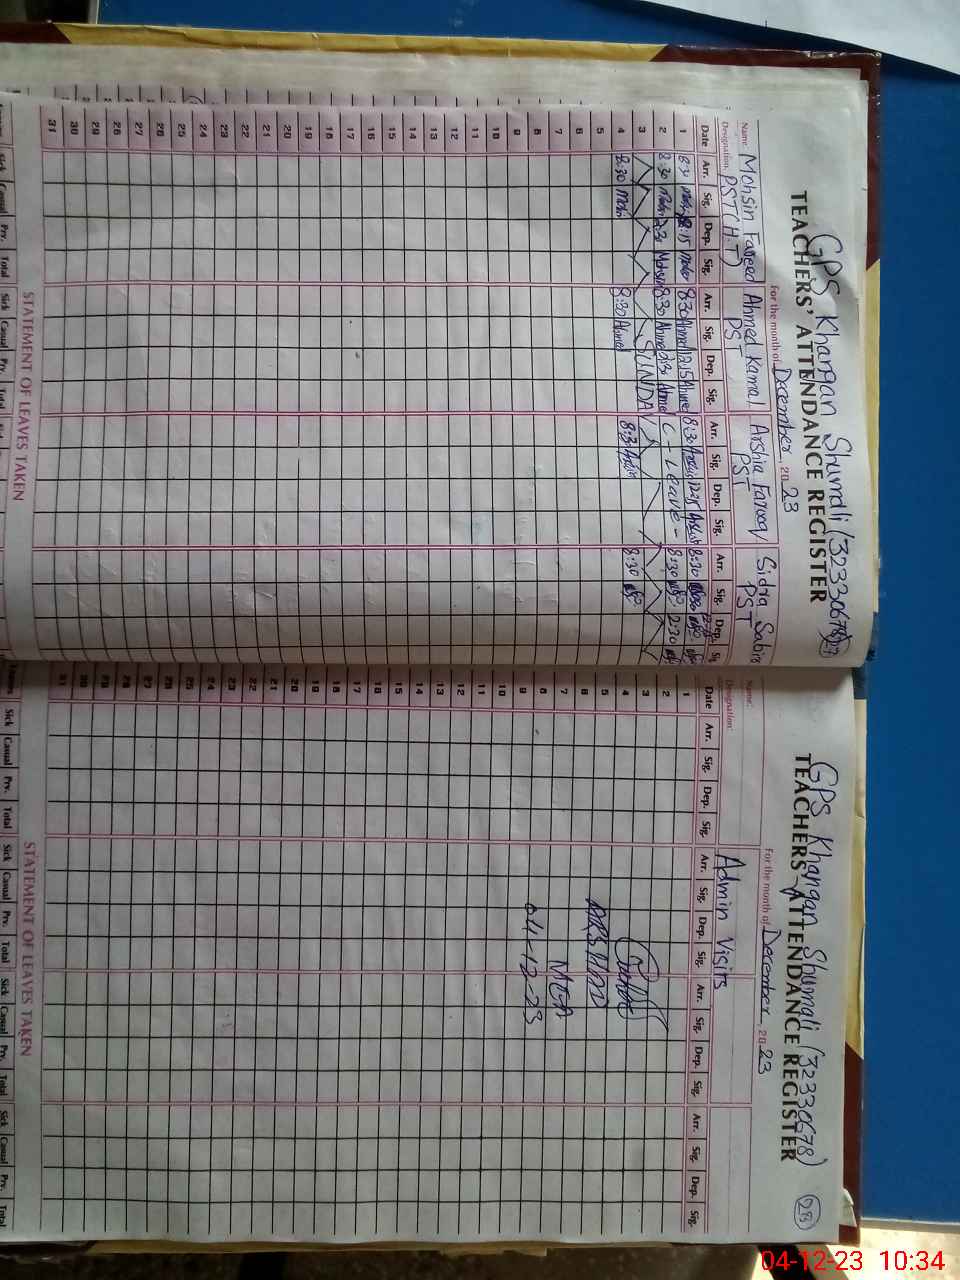 GPS Khangan Shumali (32330678) 27
TEACHERS' ATTENDANCE REGISTER
For the month of December, 2023
Name: Mohsin Fareed Ahmed Kamal Arshia Farooq Sidra Sabir
Designation: PST (H.T) PST PST PST
Date Arr. Sig. Dep. Sig. Arr. Sig. Dep. Sig. Arr. Sig. Dep. Sig. Arr. Sig. Dep. Sig.
1 8:30 12:15 8:30 Ahmed 12:15 Ahmed 8:30 12:15 8:30
2 8:30 Mohsin 8:30 Ahmed Ahmed C - Leave - 8:30 12:30
3 SUNDAY
4 8:30 8:30 Ahmed 8:30 8:30
5
6
7
8
9
10
11
12
13
14
15
16
17
18
19
20
21
22
23
24
25
26
27
28
29
30
31
STATEMENT OF LEAVES TAKEN
Sick Casual Prv. Total Sick Casual Prv. Total
GPS Khangan Shumali (32330678) 28
TEACHERS' ATTENDANCE REGISTER
For the month of December, 2023
Name:
Designation: Admin Visits
Date Arr. Sig. Dep. Sig. Arr. Sig. Dep. Sig. Arr. Sig. Dep. Sig. Arr. Sig. Dep. Sig.
1
2
3
4
5 ARSHAD
6
7 MEA
8
9 04-12-23
10
11
12
13
14
15
16
17
18
19
20
21
22
23
24
25
26
27
28
29
30
31
STATEMENT OF LEAVES TAKEN
Sick Casual Prv. Total Sick Casual Prv. Total Sick Casual Prv. Total Sick Casual Prv. Total
04-12-23 10:34